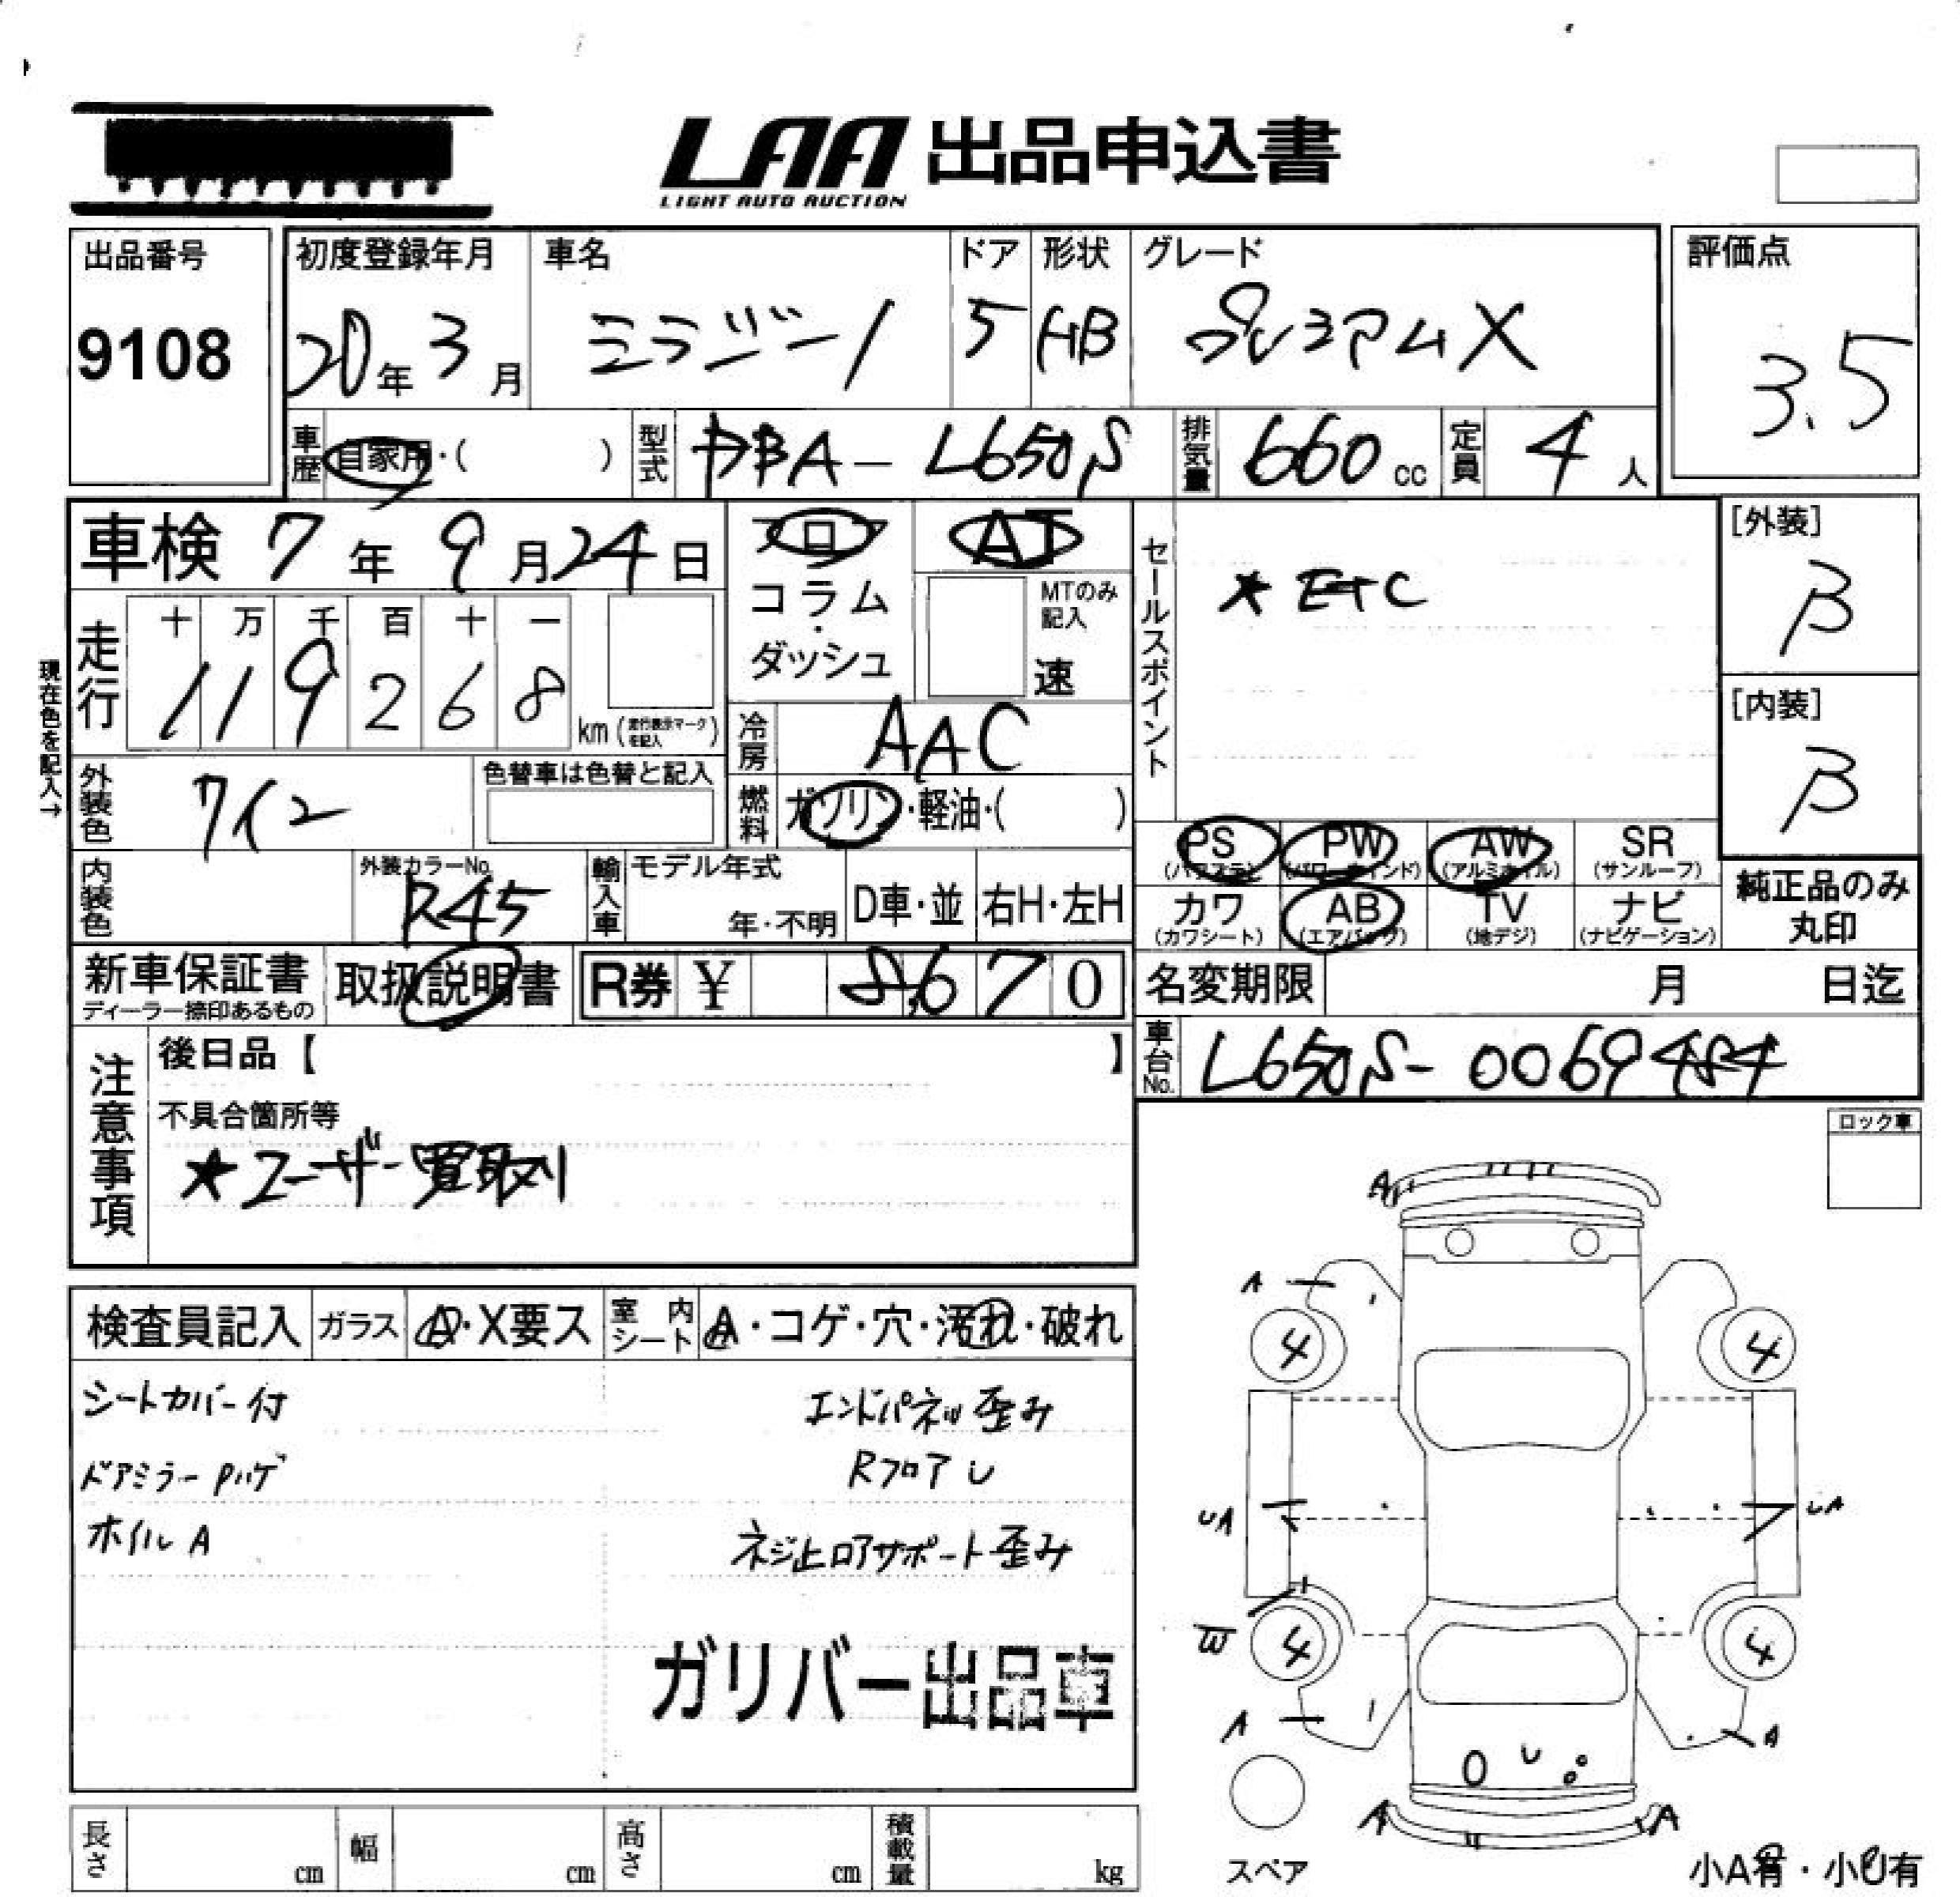 LAA 出品申込書
LIGHT AUTO AUCTION
出品番号
9108
初度登録年月
20年3月
車名
ミラジーノ
ドア
5
形状
HB
グレード
プレミアムX
評価点
3.5
車歴 自家用・( )
型式 DBA-L650S
排気量 660cc
定員 4人
車検 7年9月24日
フロア
コラム・ダッシュ
AT
MTのみ記入
速
セールスポイント
★ETC
[外装]
β
[内装]
β
現在色を記入→
走行
十 万 千 百 十 一
1 1 9 2 6 8 km (走行表示マークを記入)
冷房 AAC
外装色 ワイン
色替車は色替と記入
燃料 ガソリン・軽油・( )
PS
PW
AW (アルミホイル)
SR (サンルーフ)
カワ (カワシート)
AB (エアバッグ)
TV (地デジ)
ナビ (ナビゲーション)
純正品のみ丸印
内装色
外装カラーNo.
R45
輸入車
モデル年式
年・不明
D車・並
右H・左H
新車保証書
ディーラー捺印あるもの
取扱説明書
R券 ¥ 8,670
名変期限 月 日迄
車台No. L650S-0069484
注意事項
後日品【 】
不具合箇所等
★ユーザー買取り
ロック車
検査員記入
ガラス A・X要ス
室内シート A・コゲ・穴・汚れ・破れ
シートカバー付
エンドパネル歪み
ドアミラーPハゲ
Rフロア U
ホイルA
ネジ止ロアサポート歪み
ガリバー出品車
A
A
4 4
UA UA
W
4 4
A A
U
A A
スペア
小A有・小U有
長さ cm
幅 cm
高さ cm
積載量 kg